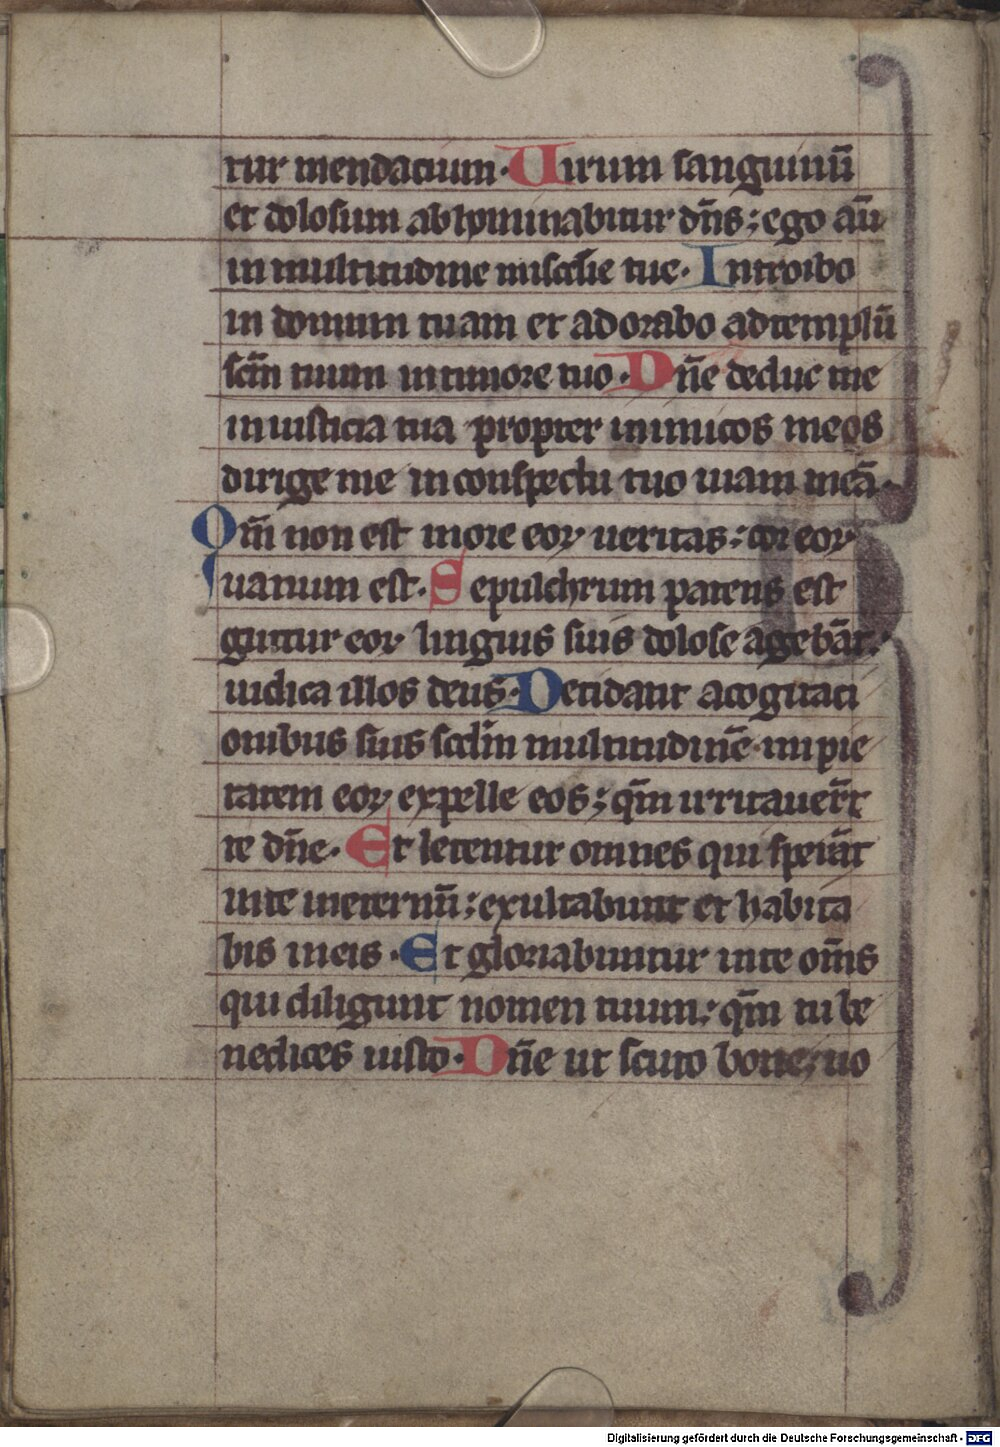 tur mendacium. Uirum sanguinū
et dolosum abhominabitur dn̄s; ego aūt
in multitudine misc̄die tue. Introibo
in domum tuam et adorabo ad templū
sc̄m tuum in timore tuo. Dn̄e deduc me
in iusticia tua propter inimicos meos
dirige me in conspectu tuo uiam meā.
Qm̄ non est in ore eoꝝ ueritas; cor eoꝝ
uanum est. Sepulchrum patens est
guttur eoꝝ linguis suis dolose agebāt;
iudica illos deus. Decidant a cogitaci
onibus suis scd̄m multitudinē impie
tatem eoꝝ expelle eos; qm̄ irritauer̄t
te dn̄e. Et letentur omnes qui sperāt
in te in eternū; exultabunt et habita
bis in eis. Et gloriabuntur in te om̄s
qui diligunt nomen tuum; qm̄ tu be
nedices iusto. Dn̄e ut scuto bone uo
Digitalisierung gefördert durch die Deutsche Forschungsgemeinschaft - DFG